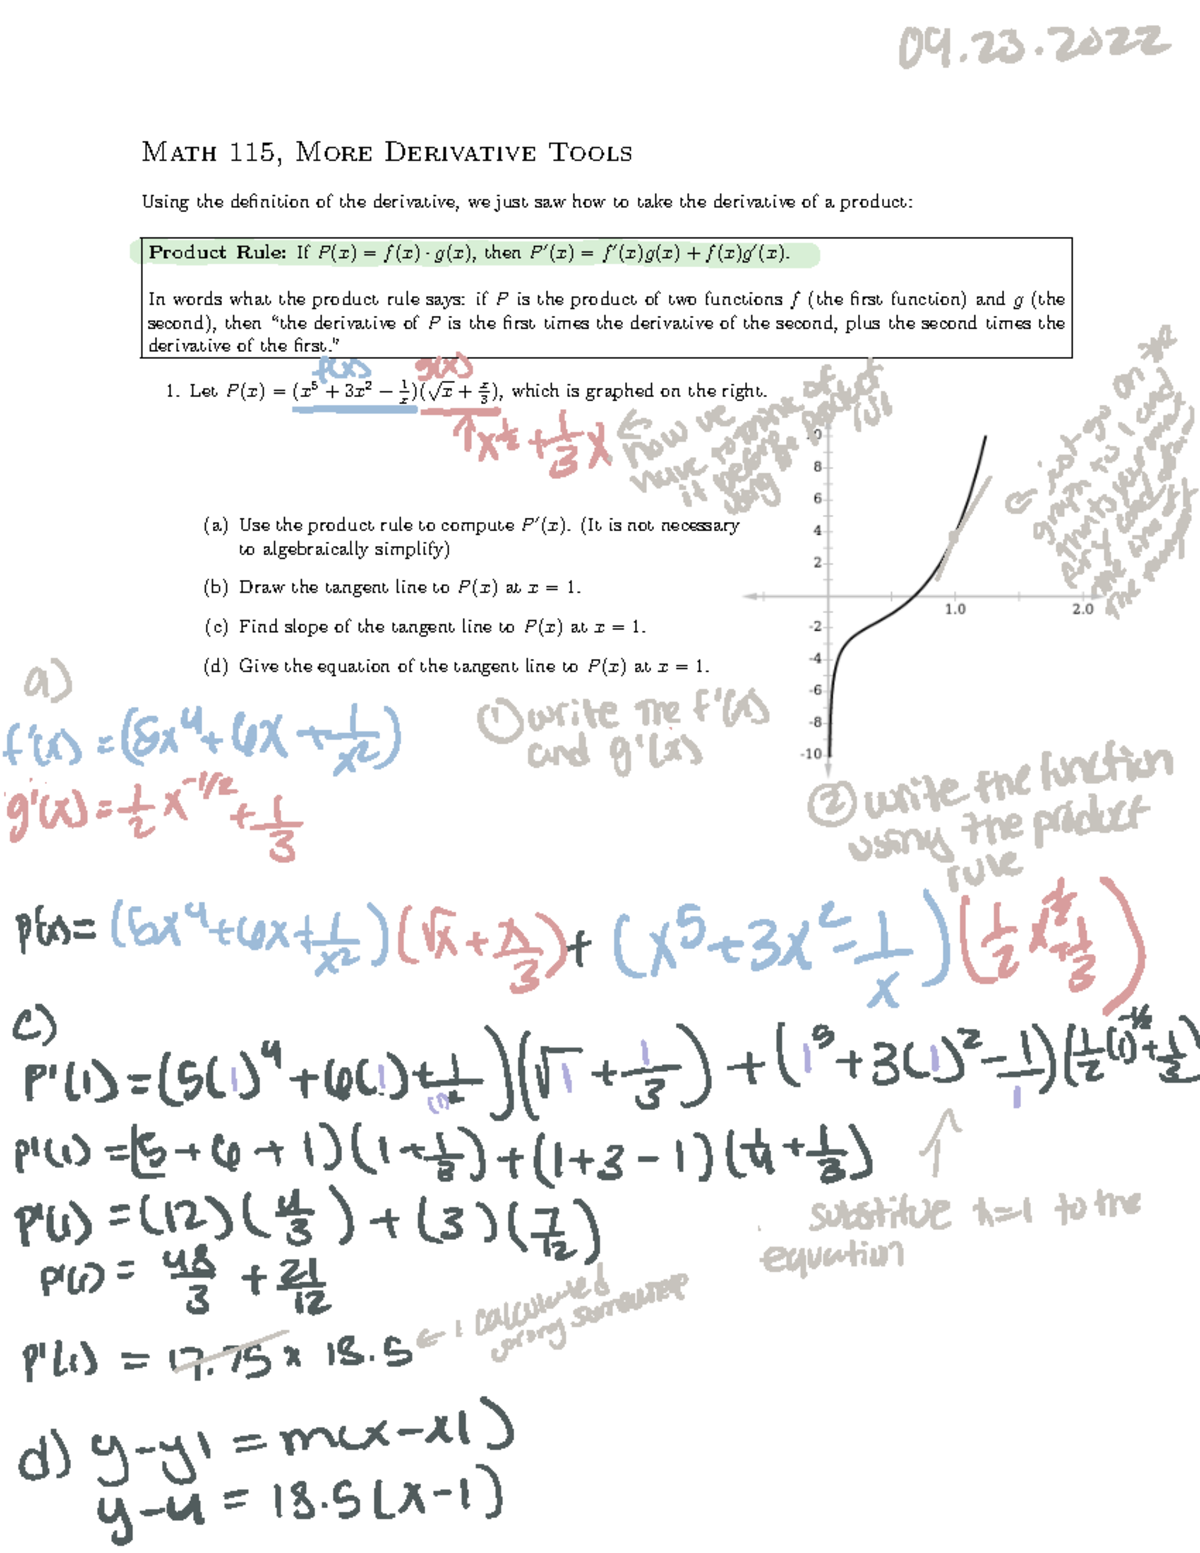 09.23.2022
MATH 115, MORE DERIVATIVE TOOLS
Using the definition of the derivative, we just saw how to take the derivative of a product:
Product Rule: If P(x) = f(x) · g(x), then P′(x) = f′(x)g(x) + f(x)g′(x).
In words what the product rule says: if P is the product of two functions f (the first function) and g (the
second), then “the derivative of P is the first times the derivative of the second, plus the second times the
derivative of the first.”
f(x) g(x)
1. Let P(x) = (x⁵ + 3x² − 1/x)(√x + x/3), which is graphed on the right.
↑x^1/2 + 1/3 x
← now we
have to think of
it before
using the product
rul
(a) Use the product rule to compute P′(x). (It is not necessary
to algebraically simplify)
(b) Draw the tangent line to P(x) at x = 1.
(c) Find slope of the tangent line to P(x) at x = 1.
(d) Give the equation of the tangent line to P(x) at x = 1.
8
6
4
2
-2
-4
-6
-8
-10
1.0 2.0
just go on the
graph to 1 and
a)
f'(x) = (5x⁴ + 6x + 1/x²)
g'(x) = 1/2 x^-1/2 + 1/3
① write the f'(x)
and g'(x)
② write the function
using the product
rule
p'(x) = (5x⁴ + 6x + 1/x²)(√x + x/3) + (x⁵ + 3x² − 1/x)(1/2 x^½ + 1/3)
c)
P'(1) = (5(1)⁴ + 6(1) + 1/(1)²)(√1 + 1/3) + (1⁵ + 3(1)² − 1/1)(1/2(1)^-½ + 1/3)
P'(1) = (5 + 6 + 1)(1 + 1/3) + (1 + 3 − 1)(1/4 + 1/3)
P'(1) = (12)(4/3) + (3)(7/12)
P'(1) = 48/3 + 21/12
P'(1) = 17.75 x 18.5 ← I calculated
wrong somewhere
substitue x=1 to the
equation
d) y − y1 = m(x − x1)
y − 4 = 18.5(x − 1)